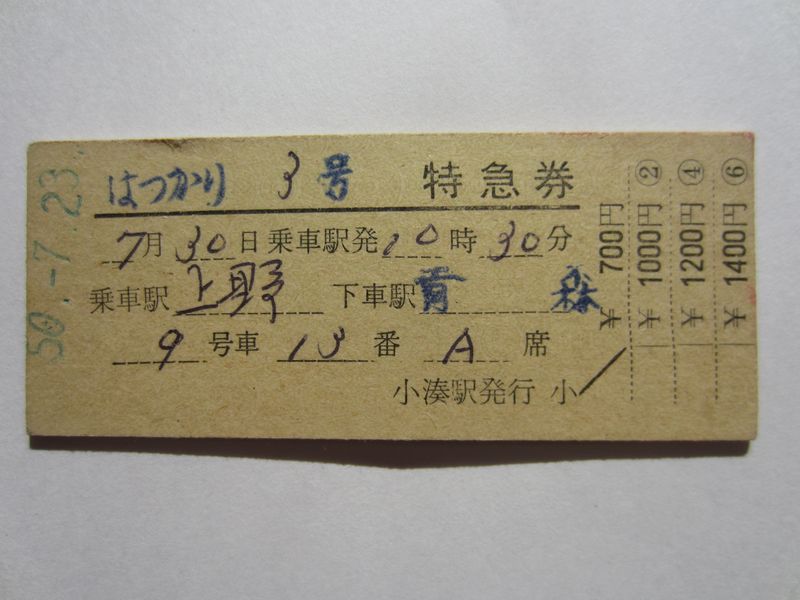 50.-7.23.
はつかり 3号 特急券
7月30日乗車駅発10時30分
乗車駅 上野 下車駅 青森
9号車 13番 A席
小湊駅発行 小
¥700円
¥1000円②
¥1200円④
¥1400円⑥